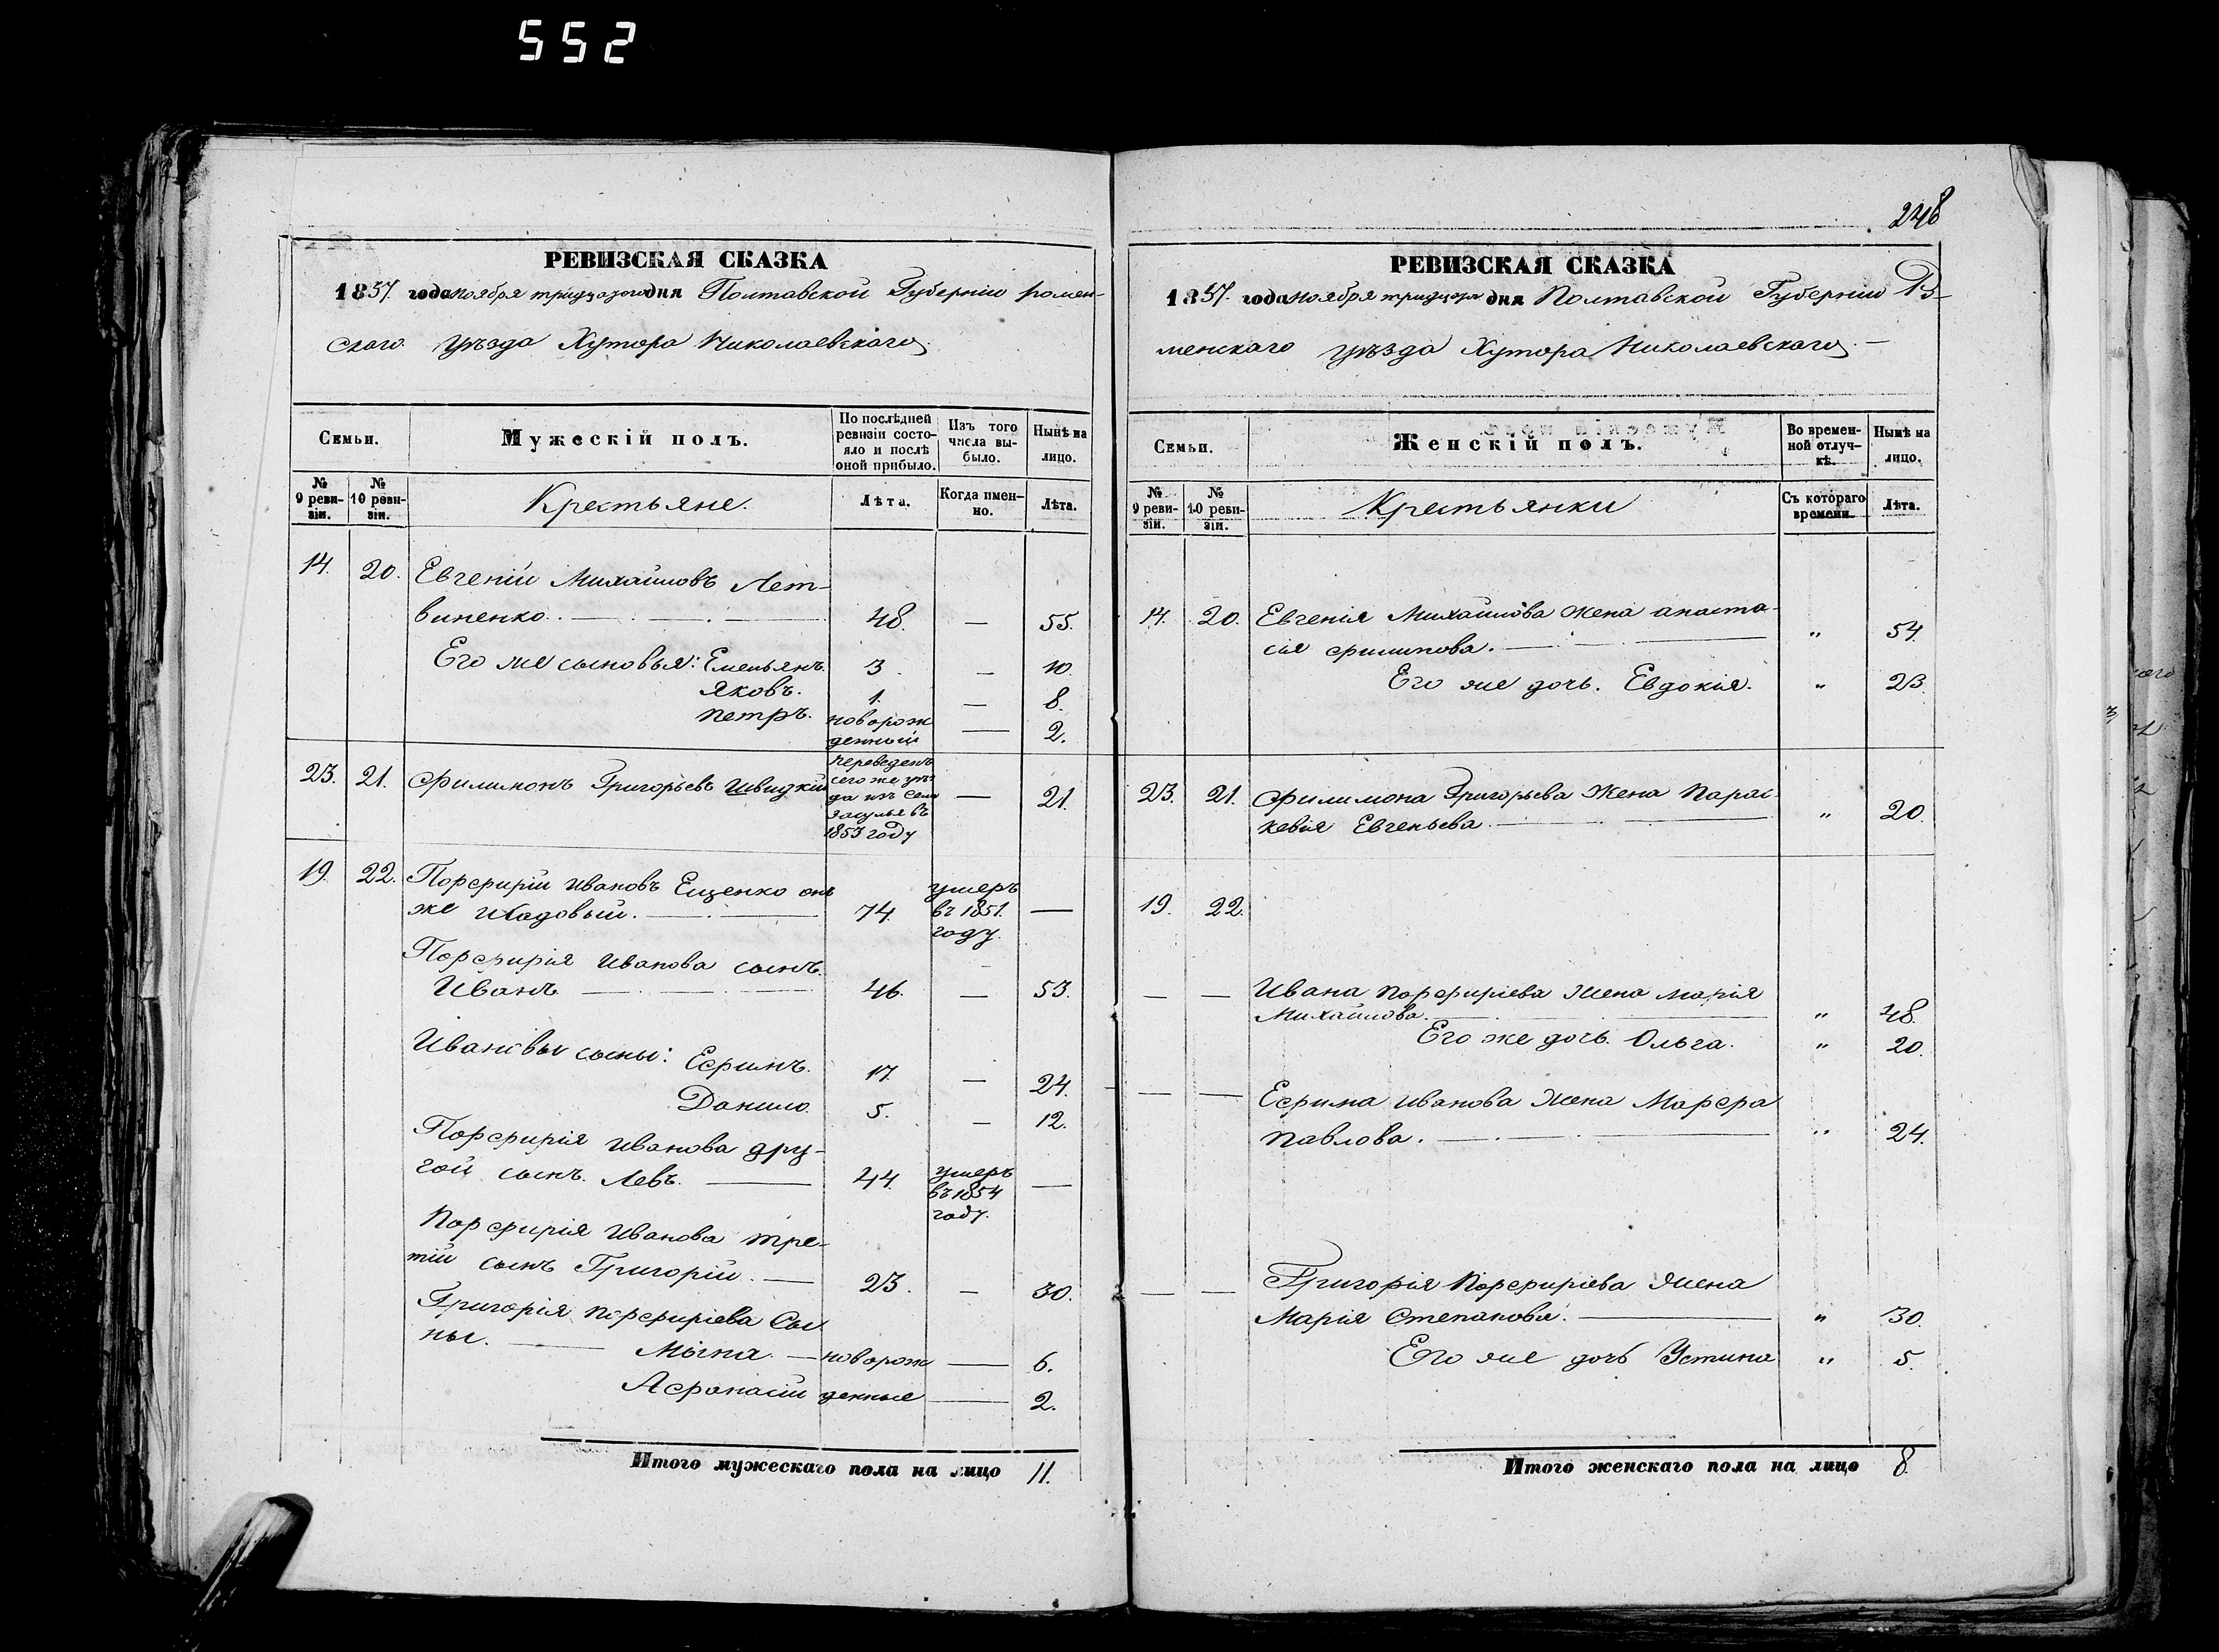 552
РЕВИЗСКАЯ СКАЗКА
1857. года ноября тридцатого дня Полтавской Губерніи Ромен-
ского уѣзда Хутора Николаевскаго.
Семьи.
Мужескій полъ.
По послѣдней ревизіи состояло и послѣ оной прибыло.
Изъ того числа выбыло.
Нынѣ на лицо.
№ 9 ревизіи.
№ 10 ревизіи.
Крестьяне.
Лѣта.
Когда именно.
Лѣта.
14. 20. Евгеній Михайловъ Лет-
виненко. 48. — 55.
Его же сыновья: Емельянъ. 3. — 10.
Яковъ. 1. — 8.
Петръ. новорож
денный — 2.
23. 21. Филимонъ Григорьевъ Швидкій
переведенъ
сего же уѣз
да изъ Села
Засулья въ
1853 году — 21.
19. 22. Порфирій Ивановъ Ещенко онъ
же Шадовый. 74. умеръ
въ 1851.
году. —
Порфирія Иванова сынъ.
Иванъ 46. — 53.
Ивановы сыны: Ефимъ. 17. — 24.
Данило. 5. — 12.
Порфирія Иванова дру-
гой сынъ. Левъ. 44. умеръ
въ 1854
году. —
Порфирія Иванова тре-
тій сынъ Григорій. 23. — 30.
Григорія Порфиріева Сы
ны. — новорож — 6.
Афанасій денные — 2.
Итого мужескаго пола на лицо 11.
248
РЕВИЗСКАЯ СКАЗКА
1857. года ноября дня Полтавской Губерніи Ро-
менскаго уѣзда Хутора Николаевскаго. —
Семьи.
Женскій полъ.
Во временной отлучкѣ.
Нынѣ на лицо.
№ 9 ревизіи.
№ 10 ревизіи.
Крестьянки
Съ котораго времени.
Лѣта.
14. 20. Евгенія Михайлова жена анаста-
сія филипова. " 54.
Его же дочь. Евдокія. " 23.
23. 21. Филимона Григорьева Жена Парас
кевія Евгеньева. " 20.
19. 22.
— — Ивана Порфиріева Жена Марія
Михайлова. " 48.
Его же дочь. Ольга. " 20.
— — Ефима Иванова Жена Марфа
Павлова. " 24.
— — Григорія Порфиріева Жена
Марія Степанова. " 30.
Его же дочь Устина " 5.
Итого женскаго пола на лицо 8.